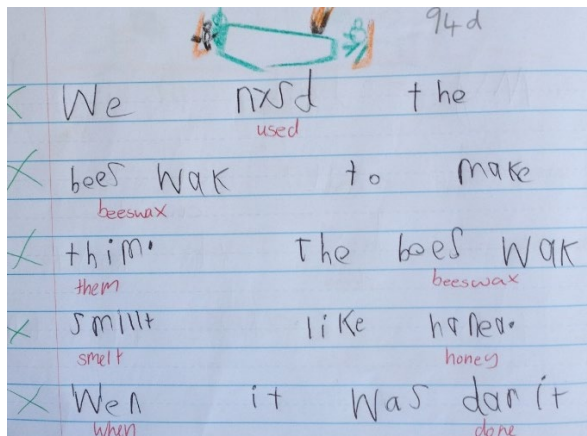 94d
We nxsd the
used
bees wak to make
beeswax
thim. The bees wak
them beeswax
smillt like honea.
smelt honey
Wen it was dan it
when done